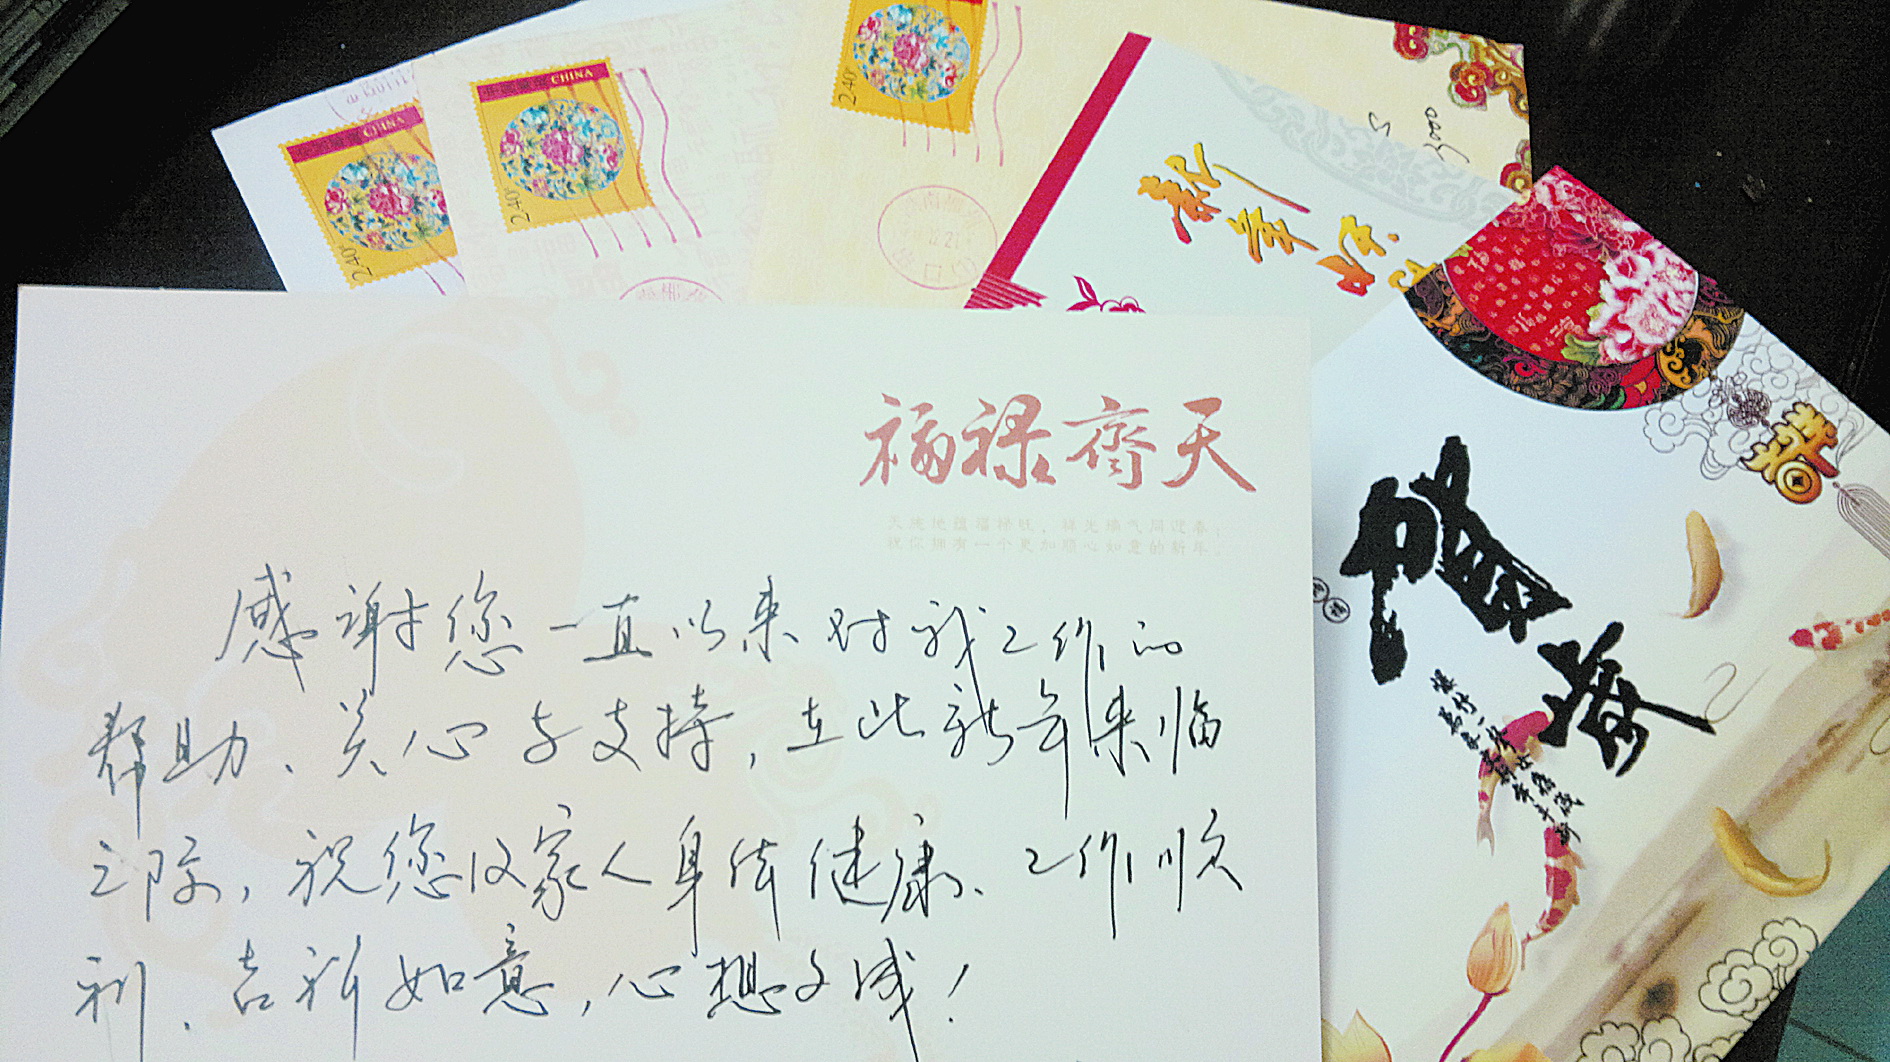 CHINA
2.40
CHINA
2.40
2.40
新年好
福禄齐天
祝你拥有一个更加顺心如意的新年
感谢您一直以来对我工作的
帮助、关心与支持，在此新年来临
之际，祝您及家人身体健康、工作顺
利、吉祥如意，心想事成！
贺岁